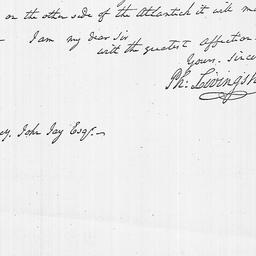 on the other side of the Atlantick it will
I am my dear Sir
with the greatest affection
Yours. Sincer
Ph: Livings
John Jay Esqr.